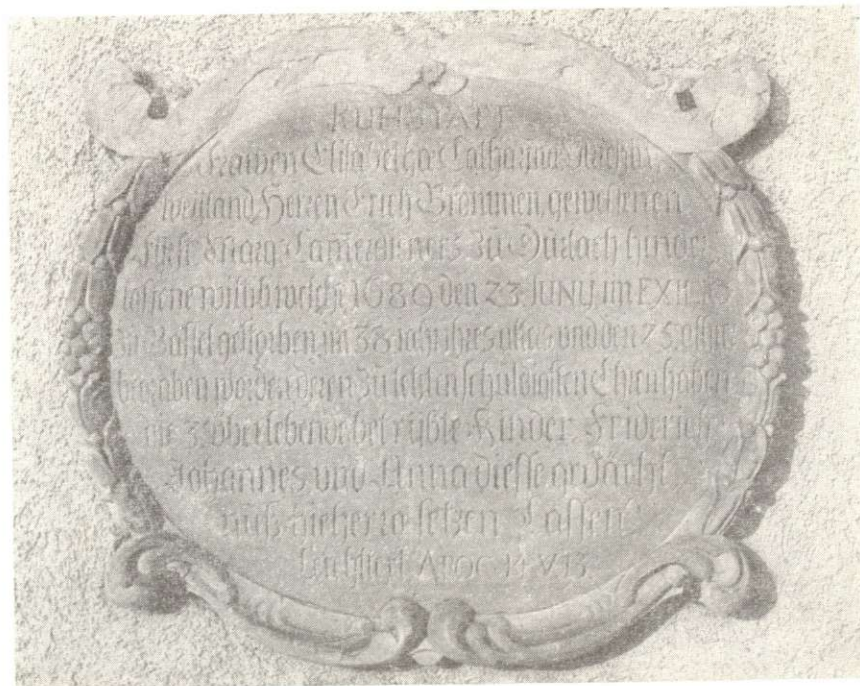 RUHSTATT
Frawen Elisabethæ Catharinæ
weiland Herren Erich Brömmen, gewessenen
Fürst Marg. zu Durlach hinder
lassene wittib welche 1689 den 23 JUNIJ im EXIL
zu Bassel gestorben, im 38 jahr ihres alters und den 25 
begraben worden deren zu letsten schuldigsten Ehren haben
die 3 überlebende betrübte Kinder Friderich
Johannes und Anna diesse gedächt
nus hieher setzen Lassen
Leichtext APOC 14 V 13.